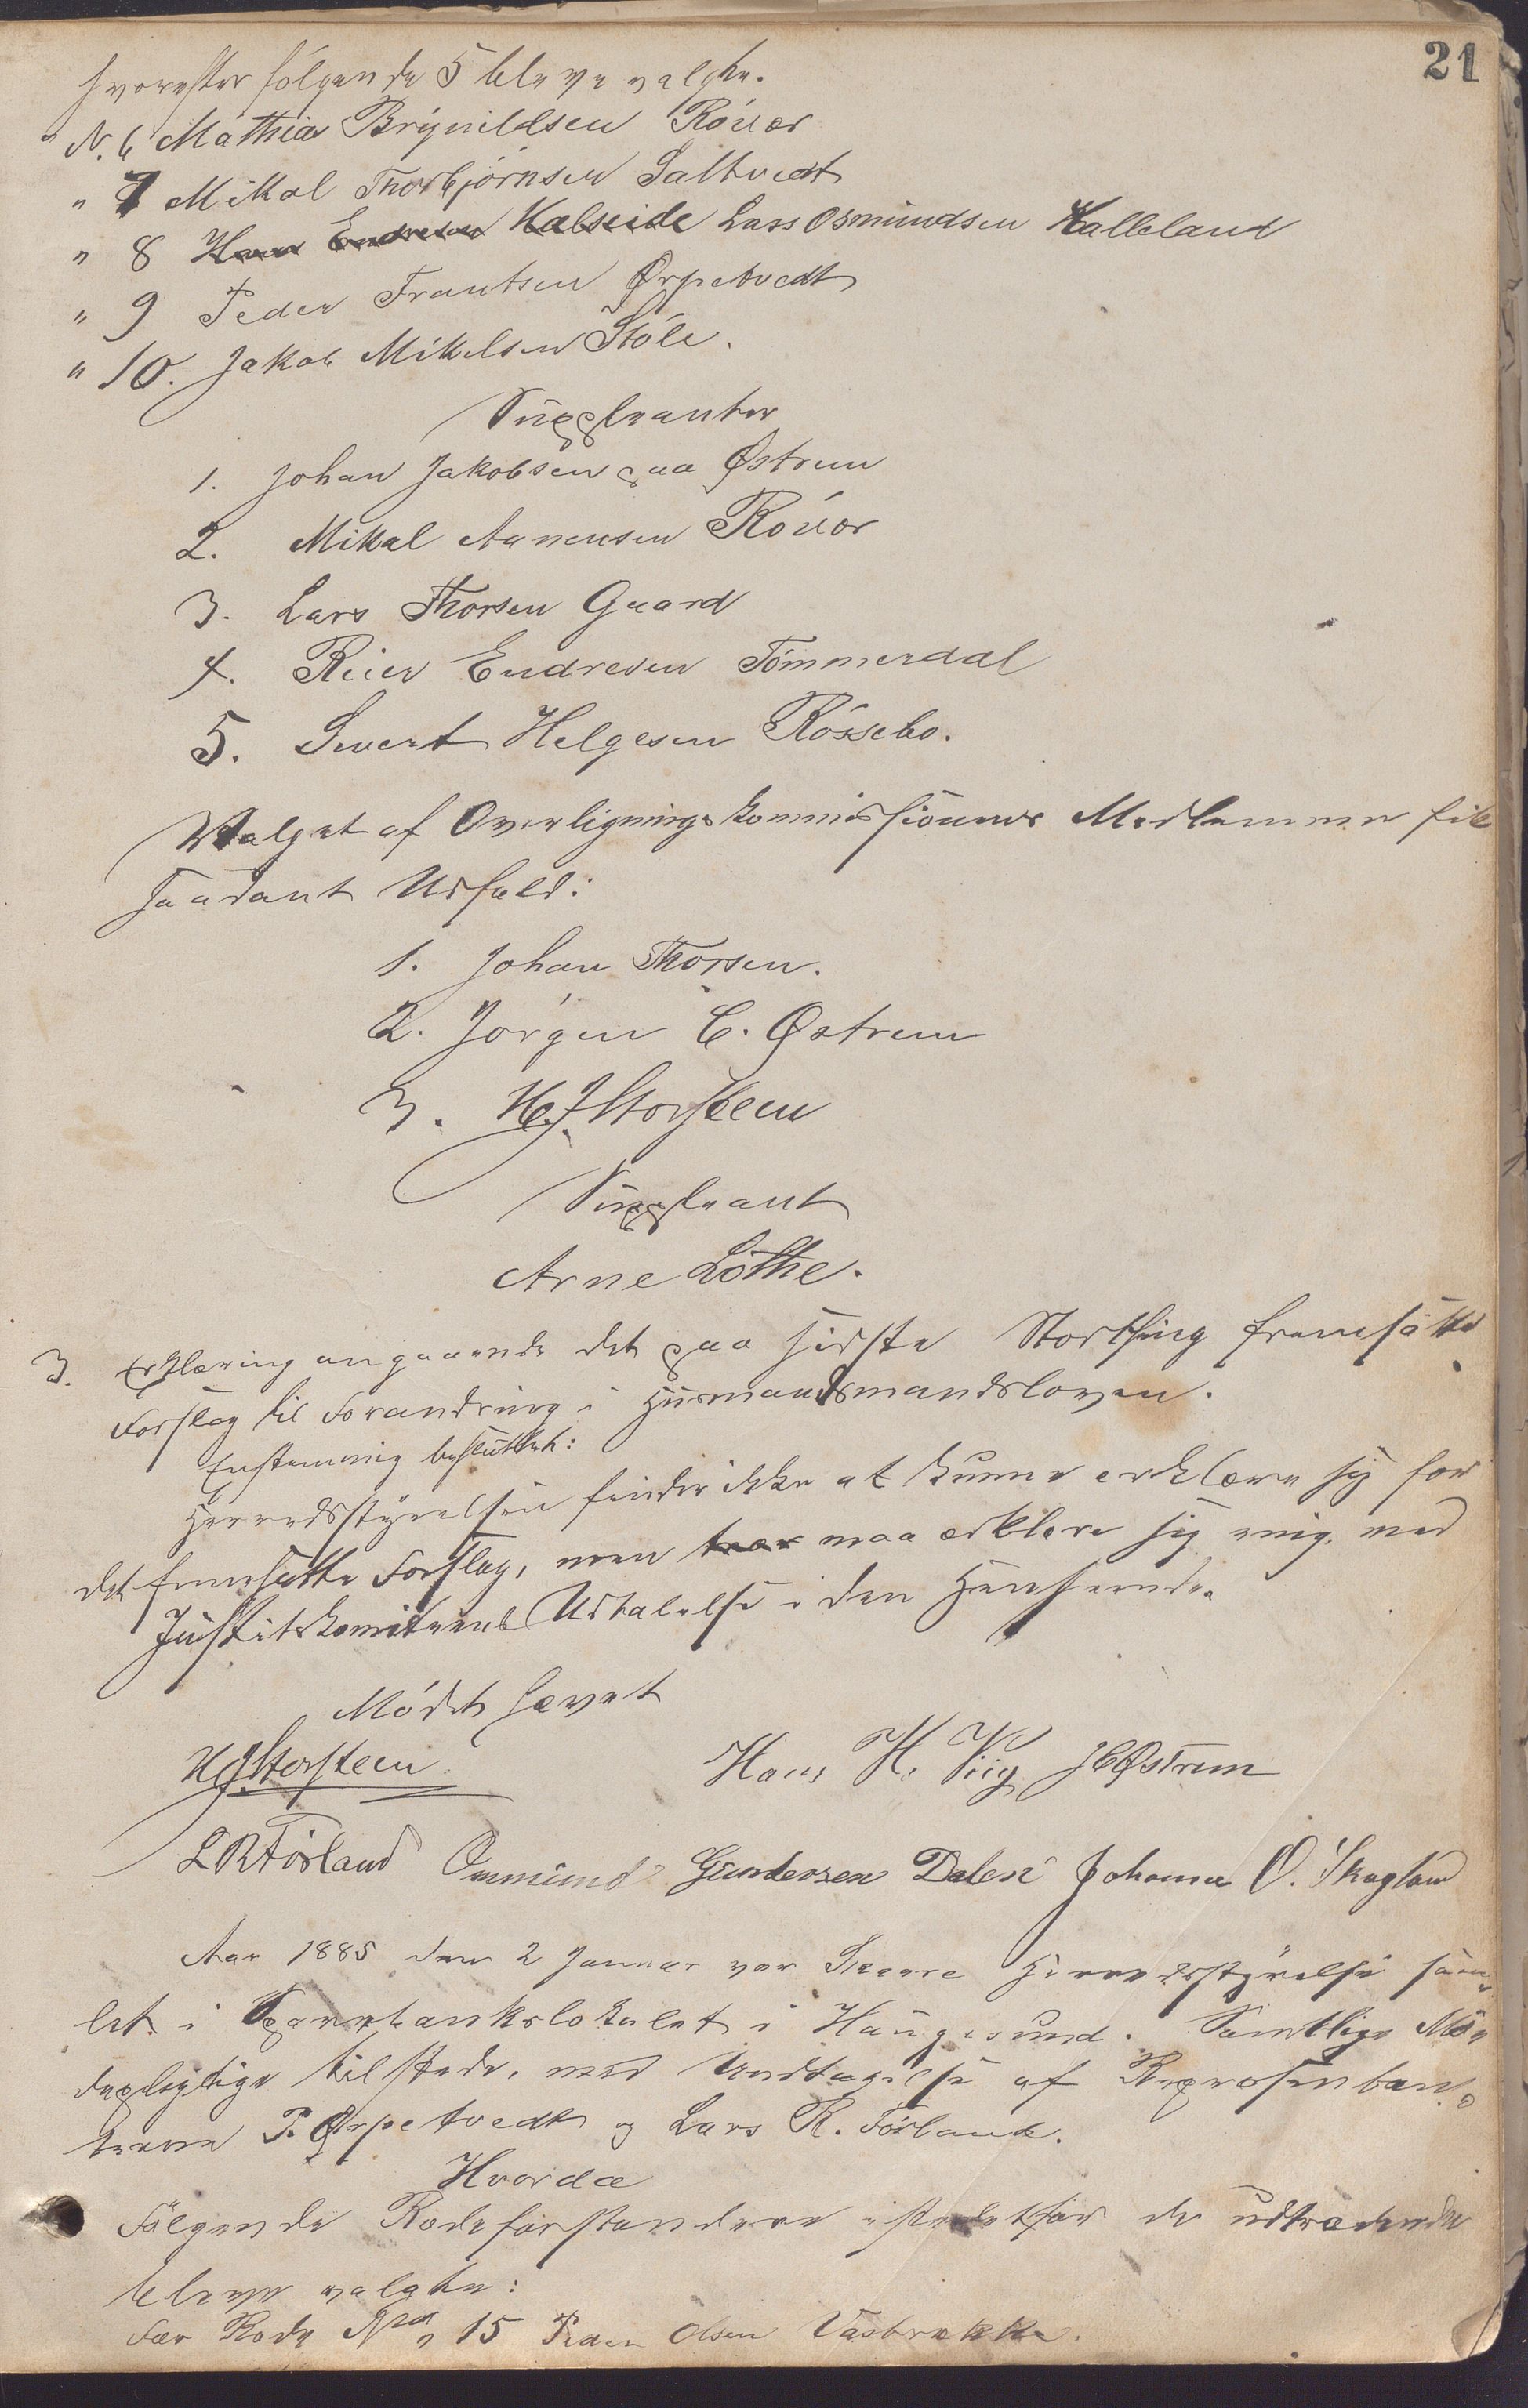 21
hvorefter følgende 5 bleve valgte.
" N. 6 Mathias Brynildsen Röver
" 7 Mikal Thorbjörnsen Saltvedt
" 8 Hans Endresen Kalseide Lars Osmundsen Kalleland
" 9 Peder Frantsen Ørpetvedt
" 10. Jakob Mikelsen Stóle.
Suppleanter
1. Johan Jakobsen paa Østrem
2. Mikal Aanensen Rövær
3. Lars Thorsen Gaard
4. Reier Endresen Tömmerdal
5. Sivert Helgesen Rössebo.
Valget af Overligningskommissionens Medlemmer fik
saadant Udfald:
1. Johan Thorsen.
2. Jörgen C. Østrem
3. H. J. Storsteen
Suppleant
Arne Löthe.
3. Erklæring angaaende det paa sidste Storthing fremsatte
Forslag til Forandring i Husmandsmandsloven.
Enstemmig besluttet:
Herredsstyrelsen finder ikke at kunne erklære sig for
det fremsatte Forslag, men maa erklære sig enig med
Justitskomiteens Udtalelse i den Henseende.
Mödet hævet
H J Storsteen Hans H. Viig J C Østrem
L R Förland Ommund Gundersen Dalen Johannes O. Skogland
Aar 1885 den 2 Januar var Skaare Herredsstyrelse sam-
let i Sparebankslokalet i Haugesund. Samtlige Mö-
depligtige tilstede, med Undtagelse af Repræsentan-
terne P. Ørpetvedt og Lars R. Förland.
Hvorda
Fölgende Rodeforstandere istedetfor de udtrædende
bleve valgte:
For Rode No 15 Peder Olsen Vasbrekke.